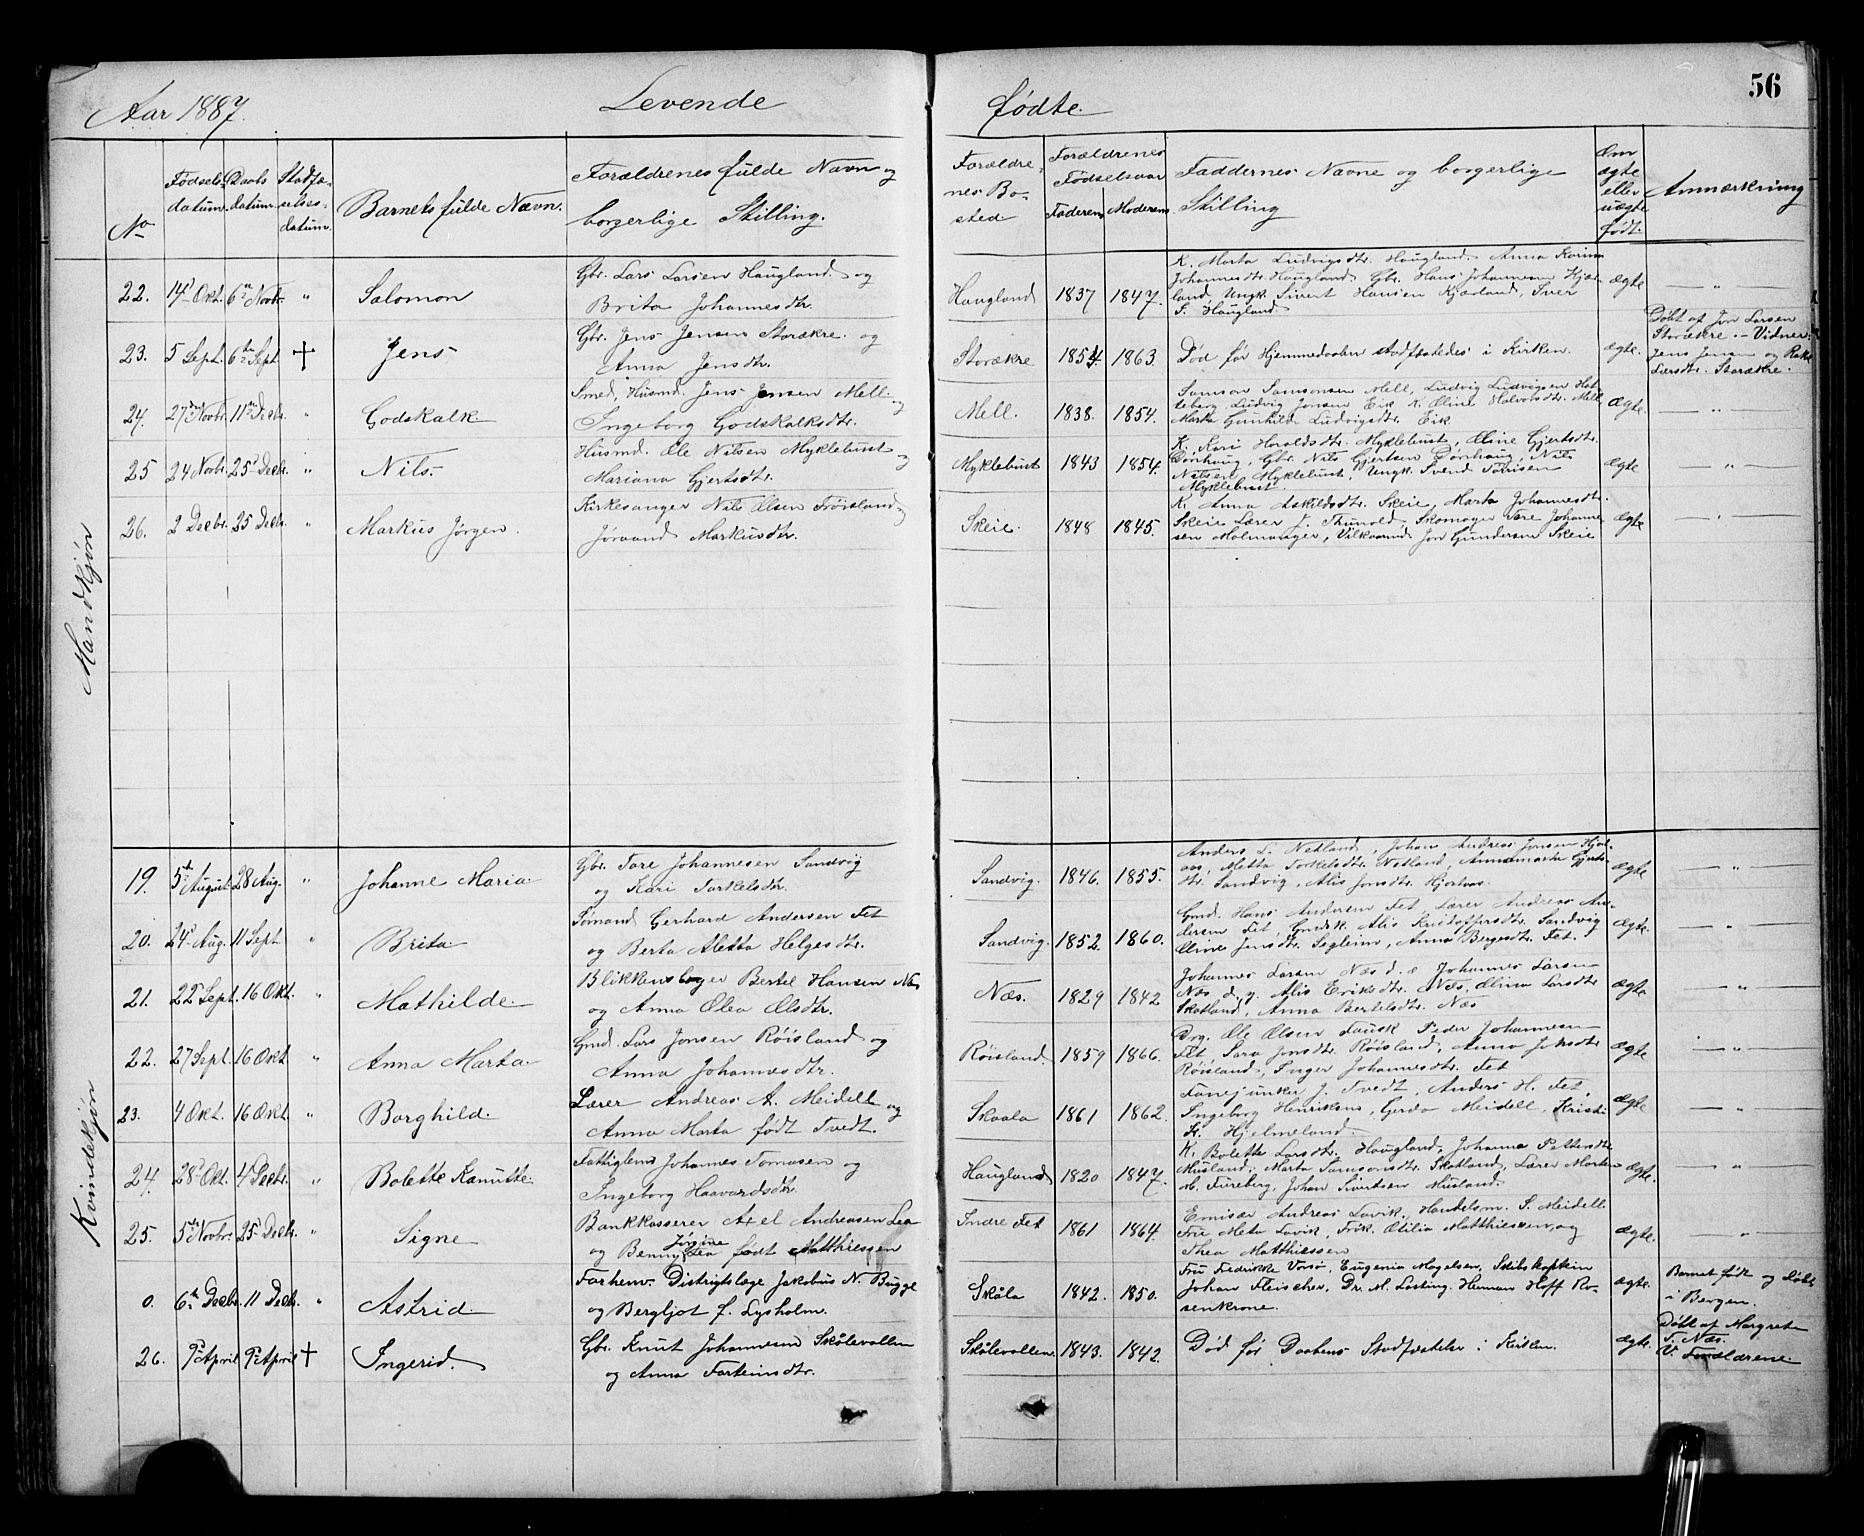 56
Aar 1887. Levende fødte.
No
Fødsels- datum.
Daabs datum.
Stadfæ- selses- datum.
Barnets fulde Navn.
Forældrenes fulde Navn og borgerlige Stilling.
Forældre- nes Bo- sted
Forældrenes Fødselsaar
Faderens Moderens
Faddernes Navne og borgerlige Stilling
Om ægte eller uægte født.
Anmærkning
Mandkjøn
22. 14de Okt. 6te Novbr. " Salomon Gbr. Lars Larsen Haugland og
Brita Johannesdtr. Haugland 1837 1847.
K. Marta Ludvigsdtr. Haugland. Anna Karina
Johannesdtr. Haugland. Gbr. Hans Johannesen Kjær-
land, Ungk. Sivert Hansen Kjærland, Iver
S. Haugland. ægte — " —
23. 5 Sept. 6te Sept. † Jens Gbr. Jens Jensen Storækre og
Anna Jensdtr. Storækre 1854. 1863 Død før Hjemmedaaben stadfæstedes i Kirken. ægte.
Døbt af Jon Larsen
Storækre. — Vidner:
Jens Jensen og
Larsdtr. Storækre.
24. 27de Novbr. 11te Decbr. " Godskalk Smed, Husmd. Jens Jensen Mell og
Ingeborg Godskalksdtr. Mell. 1838. 1854.
Samson Samsonsen Mell, Ludvig Ludvigsen Hat-
teberg, Ludvig Jonsen Eik K. Oline Halvorsdtr. Mell
Marta Gunhilde Ludvigsdtr. Eik ægte — " —
25 24 Novbr. 25de Decbr. " Nils Husmd. Ole Nilsen Myklebust og
Mariana Gjertsdtr. Myklebust 1843 1854.
K. Kari Haraldsdtr. Myklebust, Oline Gjertsdtr.
Dønhaug, Gbr. Nils Gjertsen Dønhaug, Nils
Nilsen Myklebust, Ungk. Svend Tørrisen
Myklebust. ægte — " —
26. 2 Decbr. 25 Decbr. " Markus Jørgen. Kirkesanger Nils Olsen Frøisland og
Jørand Markusdtr. Skeie. 1848 1845.
K. Anna Askildsdtr. Skeie, Marta Johannesdtr.
Skeie Lærer J. Thunold, Skomager Tore Johanne-
sen Malmanger, Vilkaarmd. Jon Gundersen Skeie ægte — " —
Kvindekjøn
19. 5te August 28 Aug. " Johanne Maria Gbr. Tore Johannesen Sandvig
og Kari Torkelsdtr. Sandvig. 1846. 1855.
Anders L. Netland, Johan Andreas Jonsen Hjor-
aas, Metta Torkelsdtr. Netland, Annamarta Gjerts-
dtr. Sandvig, Alis Jonsdtr. Hjoraas. ægte — " —
20. 24de Aug. 11 Sept. " Brita Sømand Gerhard Andersen Fet
og Berta Aletta Helgesdtr. Sandvig. 1852. 1860.
Gmd. Hans Andersen Fet, Lærer Andreas An-
dersen Fet, Gmdsk. Alis Kristoffersdtr. Sandvig
Oline Jensdtr. Segleim, Anna Bergesdtr. Fet. ægte. — " —
21. 22de Sept. 16 Okt. " Mathilde Blikkenslager Bertel Hansen Næs
og Anna Olea Olsdtr. Næs. 1829 1842
Johannes Larsen Næs d. æ Johannes Larsen
Næs d. y. Alis Eriksdtr. Næs, Olina Larsdtr
Skatland, Anna Bertelsdtr. Næs ægte — " —
22. 27 Sept. 16 Okt. " Anna Marta Gmd. Lars Jonsen Røisland og
Anna Johannesdtr. Røisland 1859 1866.
Drg. Ole Olsen Peder Johannesen
Fet, Sara Jonsdtr. Røisland, Anna Jonsdtr
Røisland, Inger Johannesdtr. Fet ægte — " —
23. 4 Okt. 16 Okt. " Borghild. Lærer Andreas A. Meidell og
Anna Marta født Tvedt. Skaala 1861 1862.
Fanejunker J. Tvedt, Anders H. Fet,
Ingeborg Henriksen, Gerda Meidell, Kristi
H. Hjelmeland. ægte — " —
24. 28de Okt. 4de Decbr. " Bolette Kanutte. Fattiglem Johannes Tomasen og
Ingeborg Haavardsdtr. Haugland 1820 1847.
K. Bolette Larsdtr. Haugland, Johanna Pettersdtr
Musland, Marta Samsonsdtr. Skatland, Lærer Morten
M. Fureberg, Johan Sjurdsen Musland. ægte. — " —
25. 5te Novbr. 25de Decbr. " Signe Bankkasserer Axel Andreasen Lea
og Benny Jørgine Lea født Matthiessen Indre Fet 1861 1864.
Emissær Andreas Lavik, Handelsm. S. Meidell
Fru Meta Lavik, Frk. Otilia Matthiessen og
Thea Matthiessen ægte. — " —
0. 6te Decbr. 11 Decbr. " Astrid Forhenv. Distriktslæge Jakobus N. Bugge
og Bergljot f. Lysholm. Skåla 1842. 1850.
Fru Fredrikke Voss, Eugenia Mogelsen, Skibskaptein
Johan Fleischer, Dr. M. Losting, Herman Hoff Ro-
senkrone. ægte.
Barnet født og døbt
i Bergen.
26. 9de April 9de April † Ingerid. Gbr. Knut Johannesen Skålevollen
og Anna Torkeinsdtr. Skålevollen. 1843. 1842. Død før Daabens Stadfæstelse i Kirken. ægte.
Døbt af Margrete
T. Næs.
V. Forældrene.